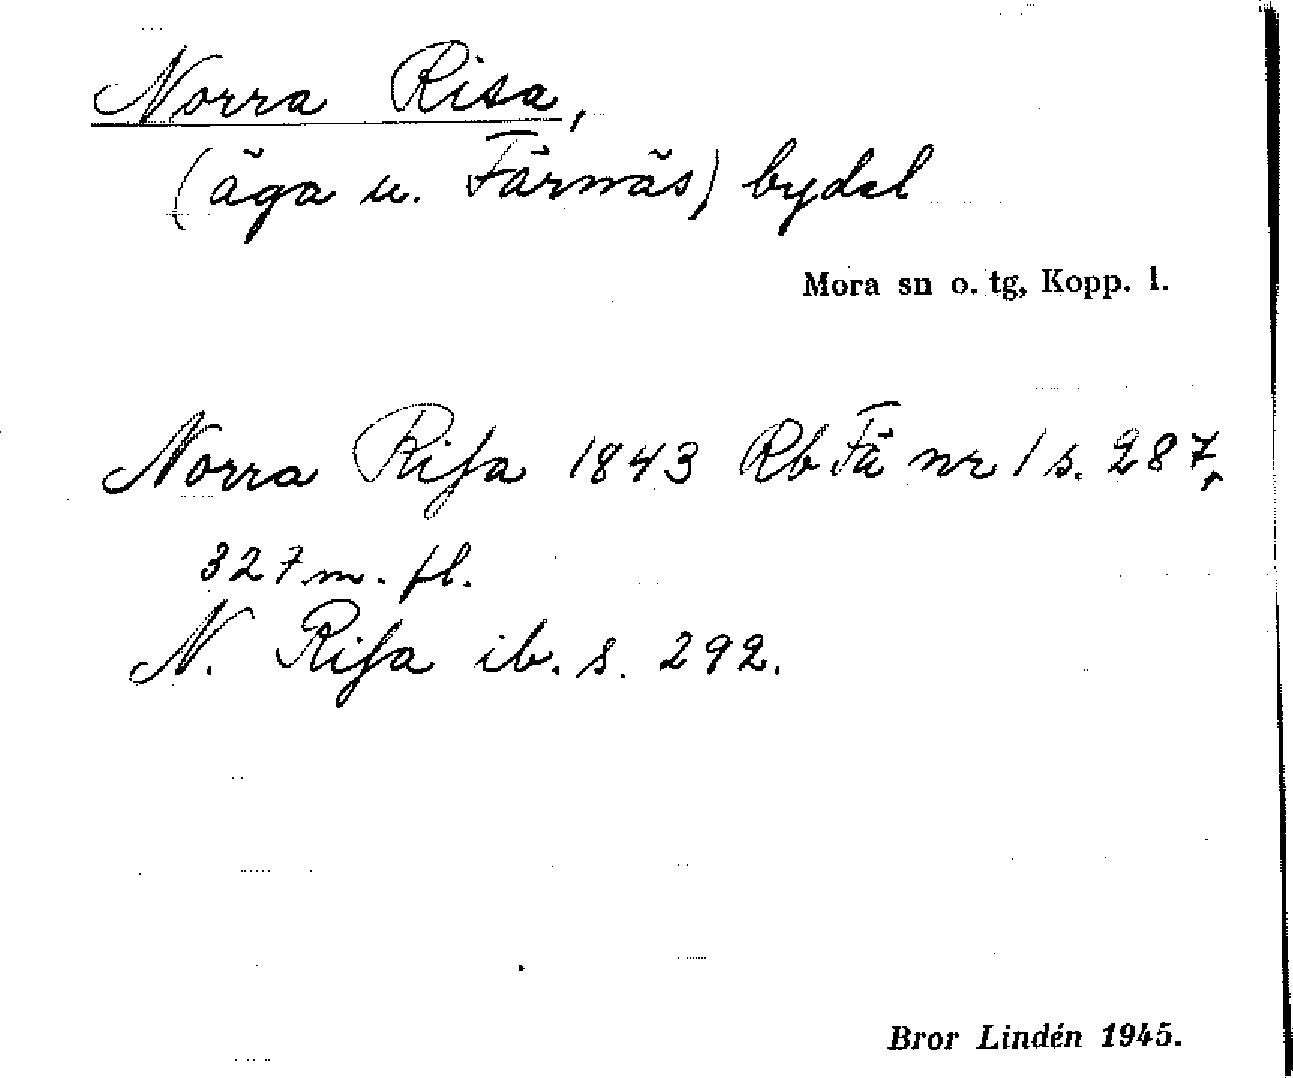 Norra Risa,
(äga u. Färnäs) bydel
Mora sn o. tg, Kopp. l.
Norra Riſa 1843 Rb Fä nr 1 s. 287,
327 m. fl.
N. Riſa ib. s. 292.
Bror Lindén 1945.